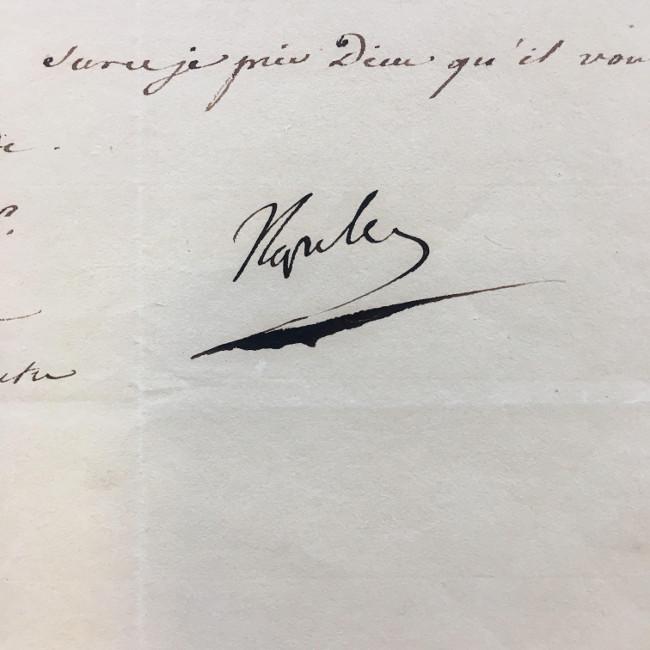 Sur ce je prie Dieu qu'il vou
Napole